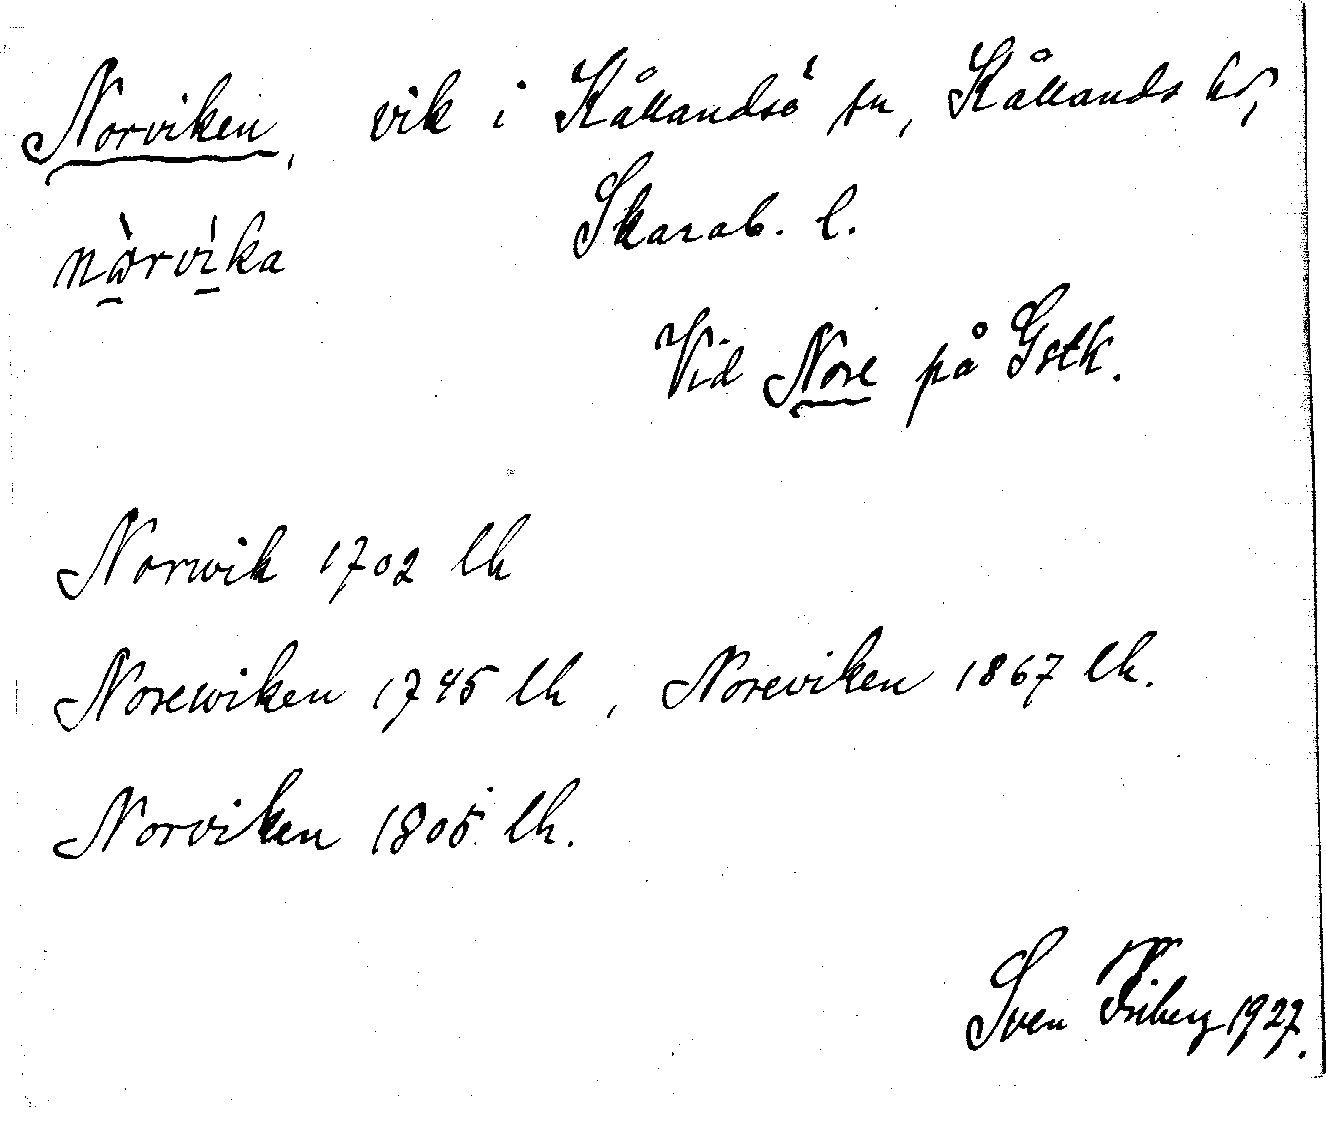 Norviken, vik i Kållandsö sn, Kållands hd,
nòrvíka
Skarab. l.
Vid Nore på Gstk.
Norwik 1702 lh
Norewiken 1745 lh, Noreviken 1867 lh.
Norviken 1805 lh.
Sven Friberg 1927.